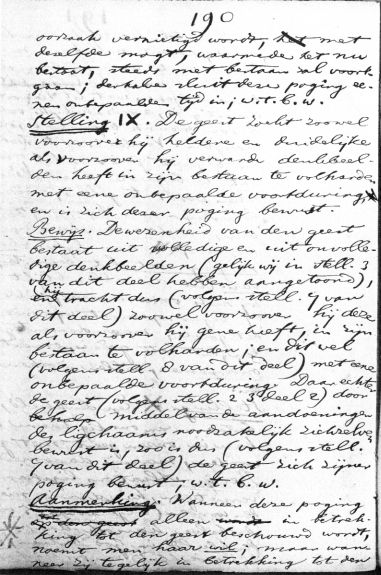 190
oorzaak vernietigd wordt, het met
deselfde magt, waarmede het nu
bestaat, steeds met bestaan zal voort-
gaan; derhalve sluit deze poging ee-
nen onbepaalden tijd in; w.t.b.w.
Stelling IX. De geest zoekt zoowel
voorzoover hij heldere en duidelijke
als voorzoover hij verwarde denkbeel-
den heeft in zijn bestaan te volharden
met eene onbepaalde voortduring,
en is zich dezer poging bewust.
Bewijs. De wezenheid van den geest
bestaat uit volledige en uit onvolle-
dige denkbeelden (gelijk wij in stell. 3
van dit deel hebben aangetoond),
en tracht dus (volgens stell. 7 van
dit deel) zoowel voorzoover hij deze
als voorzoover hij gene heeft, in zijn
bestaan te volharden; en dit wel
(volgens stell. 8 van dit deel) met eene
onbepaalde voortduring. Daar echter
de geest (volgens stell. 23 deel 2) door
middel van de aandoeningen
des ligchaams noodzakelijk zichzelve
bewust is, zoo is dus (volgens stell.
7 van dit deel) de geest zich zijner
poging bewust, w.t.b.w.
Aanmerking. Wanneer deze poging
alleen in betrek-
king tot den geest beschouwd wordt,
noemt men haar wil; maar wan-
neer zij tegelijk in betrekking tot den